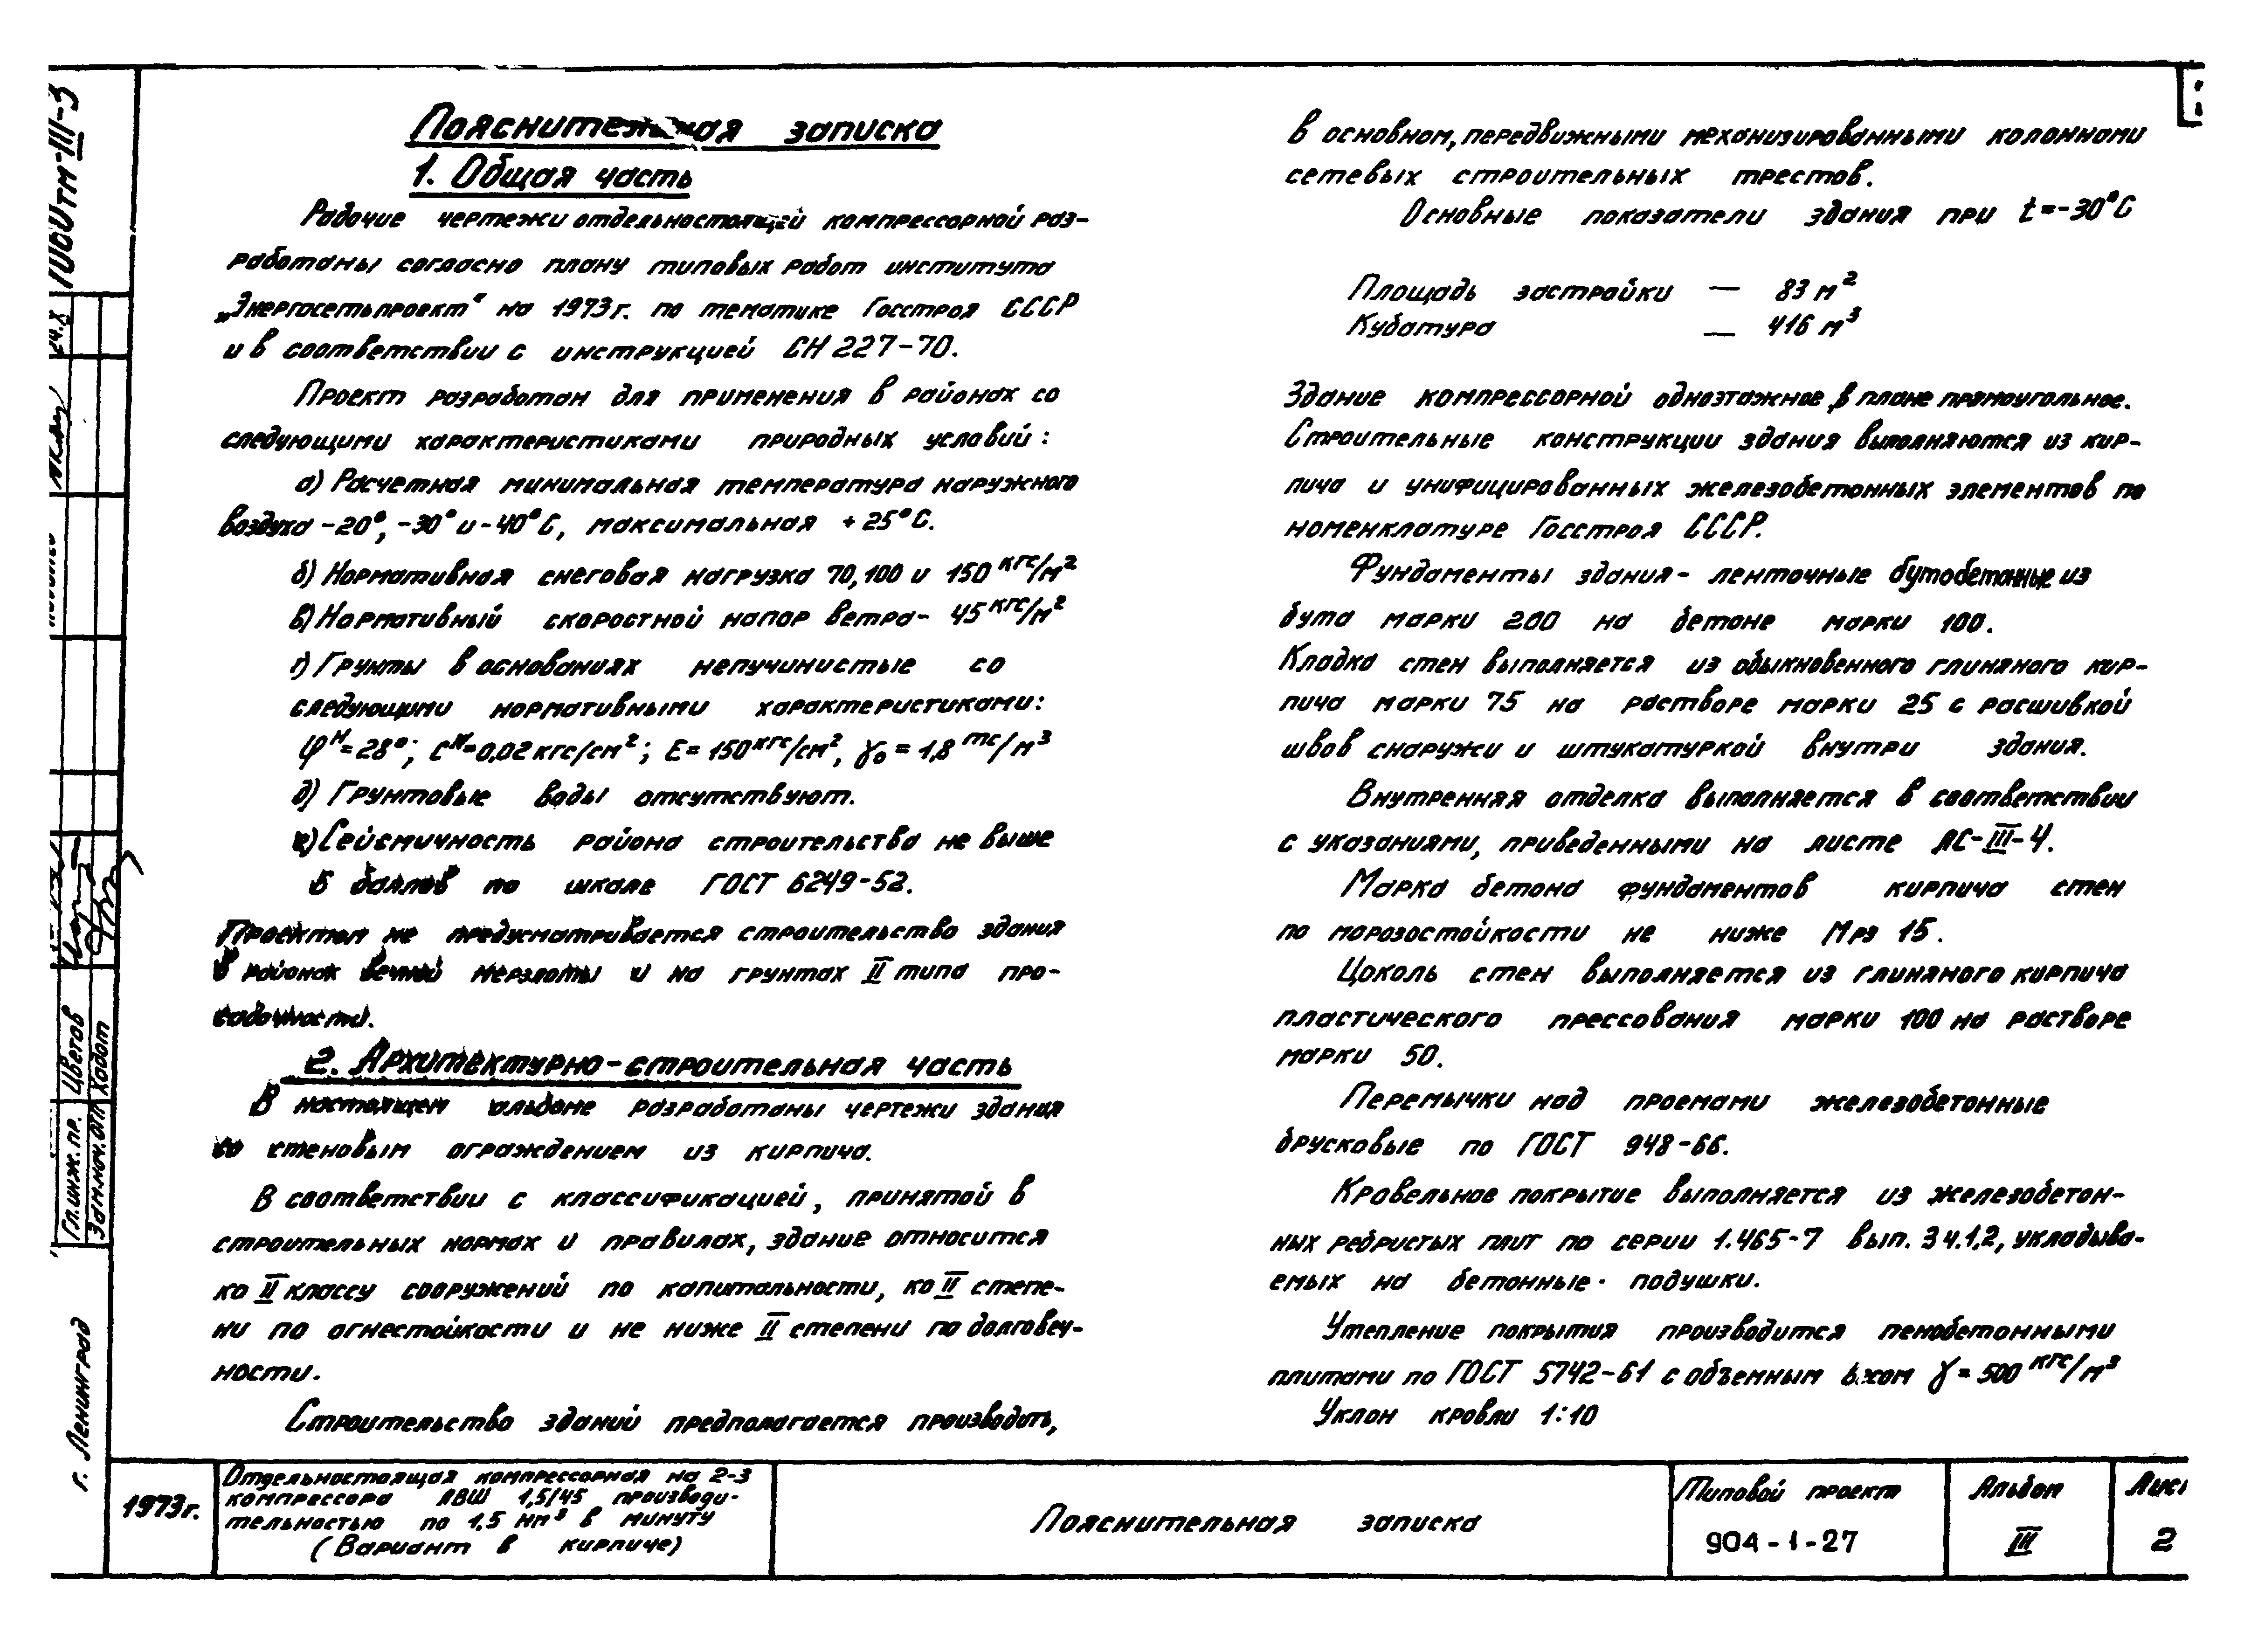 Пояснительная записка
1. Общая часть
Рабочие чертежи отдельностоящей компрессорной раз-
работаны согласно плану типовых работ института
„Энергосетьпроект“ на 1973г. по тематике Госстроя СССР
и в соответствии с инструкцией СН 227-70.
Проект разработан для применения в районах со
следующими характеристиками природных условий:
а) Расчетная минимальная температура наружного
воздуха -20°, -30° и -40°С, максимальная +25°С.
б) Нормативная снеговая нагрузка 70, 100 и 150 кгс/м²
в) Нормативный скоростной напор ветра - 45 кгс/м²
г) Грунты в основаниях непучинистые со
следующими нормативными характеристиками:
φᴴ=28°; Cᴴ=0,02 кгс/см²; E=150 кгс/см², γ₀=1,8 тс/м³
д) Грунтовые воды отсутствуют.
е) Сейсмичность района строительства не выше
6 баллов по шкале ГОСТ 6249-52.
Проектом не предусматривается строительство здания
в районах вечной мерзлоты и на грунтах II типа про-
садочности.
2. Архитектурно-строительная часть
В настоящем альбоме разработаны чертежи здания
со стеновым ограждением из кирпича.
В соответствии с классификацией, принятой в
строительных нормах и правилах, здание относится
ко II классу сооружений по капитальности, ко II степе-
ни по огнестойкости и не ниже II степени по долговеч-
ности.
Строительство зданий предполагается производить,
в основном, передвижными механизированными колоннами
сетевых строительных трестов.
Основные показатели здания при t=-30°С
Площадь застройки — 83 м²
Кубатура — 416 м³
Здание компрессорной одноэтажное, в плане прямоугольное.
Строительные конструкции здания выполняются из кир-
пича и унифицированных железобетонных элементов по
номенклатуре Госстроя СССР.
Фундаменты здания - ленточные бутобетонные из
бута марки 200 на бетоне марки 100.
Кладка стен выполняется из обыкновенного глиняного кир-
пича марки 75 на растворе марки 25 с расшивкой
швов снаружи и штукатуркой внутри здания.
Внутренняя отделка выполняется в соответствии
с указаниями, приведенными на листе АС-III-4.
Марка бетона фундаментов кирпича стен
по морозостойкости не ниже Мрз 15.
Цоколь стен выполняется из глиняного кирпича
пластического прессования марки 100 на растворе
марки 50.
Перемычки над проемами железобетонные
брусковые по ГОСТ 948-66.
Кровельное покрытие выполняется из железобетон-
ных ребристых плит по серии 1.465-7 вып. 3 ч.1,2, укладыва-
емых на бетонные подушки.
Утепление покрытия производится пенобетонными
плитами по ГОСТ 5742-61 с объемным весом γ=500 кгс/м³
Уклон кровли 1:10
24.X
Гл. инж. пр. Цветов
Зам. нач. ОТП Хадот
г. Ленинград
1973г.
Отдельностоящая компрессорная на 2-3
компрессора АВШ 1,5/45 производи-
тельностью по 1,5 нм³ в минуту
(Вариант в кирпиче)
Пояснительная записка
Типовой проект
904-1-27
Альбом
III
Лист
2